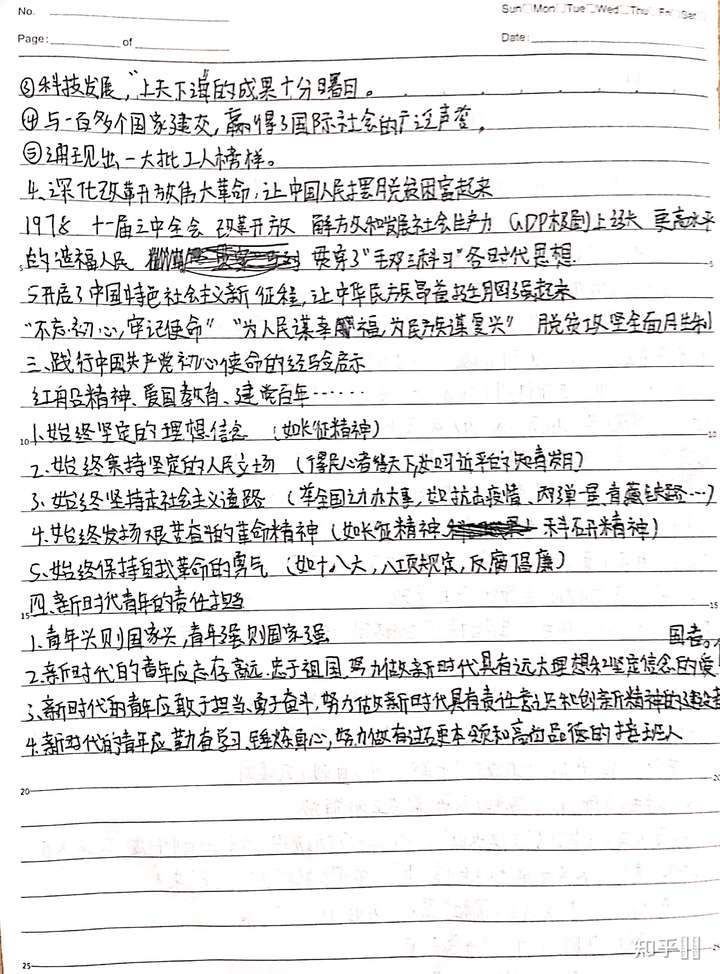 No.
Sun Mon Tue Wed Thu Fri Sat
Page: of
Date:
③科技发展,"上天下海"的成果十分瞩目。
④与一百多个国家建交,赢得了国际社会的广泛声誉。
⑤涌现出一大批工人榜样。
4.深化改革开放伟大革命,让中国人民摆脱贫困富起来
1978 十一届三中全会 改革开放 解放和发展社会生产力 GDP极剧上涨 更高水平
5
的造福人民 贯穿了"毛邓三科习"各时代思想.
5.开启了中国特色社会主义新征程,让中华民族昂首挺胸强起来
"不忘初心,牢记使命" "为人民谋幸福,为民族谋复兴" 脱贫攻坚全面胜利
三、践行中国共产党初心使命的经验启示
红船精神、爱国教育、建党百年……
10 1.始终坚定的理想信念 (如长征精神) 10
2.始终秉持坚定的人民立场 (得民心者得天下,如习近平的知青岁月)
3.始终坚持走社会主义道路 (举全国之力办大事,如抗击疫情、两弹一星、青藏铁路…)
4.始终发扬艰苦奋斗的革命精神 (如长征精神, 科研精神)
5.始终保持自我革命的勇气 (如十八大,八项规定,反腐倡廉)
四.新时代青年的责任担当
15 15
1.青年兴则国家兴,青年强则国家强
国者。
2.新时代的青年应志存高远.忠于祖国,努力做新时代具有远大理想和坚定信念的爱
3.新时代的青年应敢于担当、勇于奋斗,努力做新时代具有责任意识和创新精神的建设者
4.新时代的青年应勤奋学习、锤炼身心,努力做有过硬本领和高尚品德的接班人
20 20
25
知乎